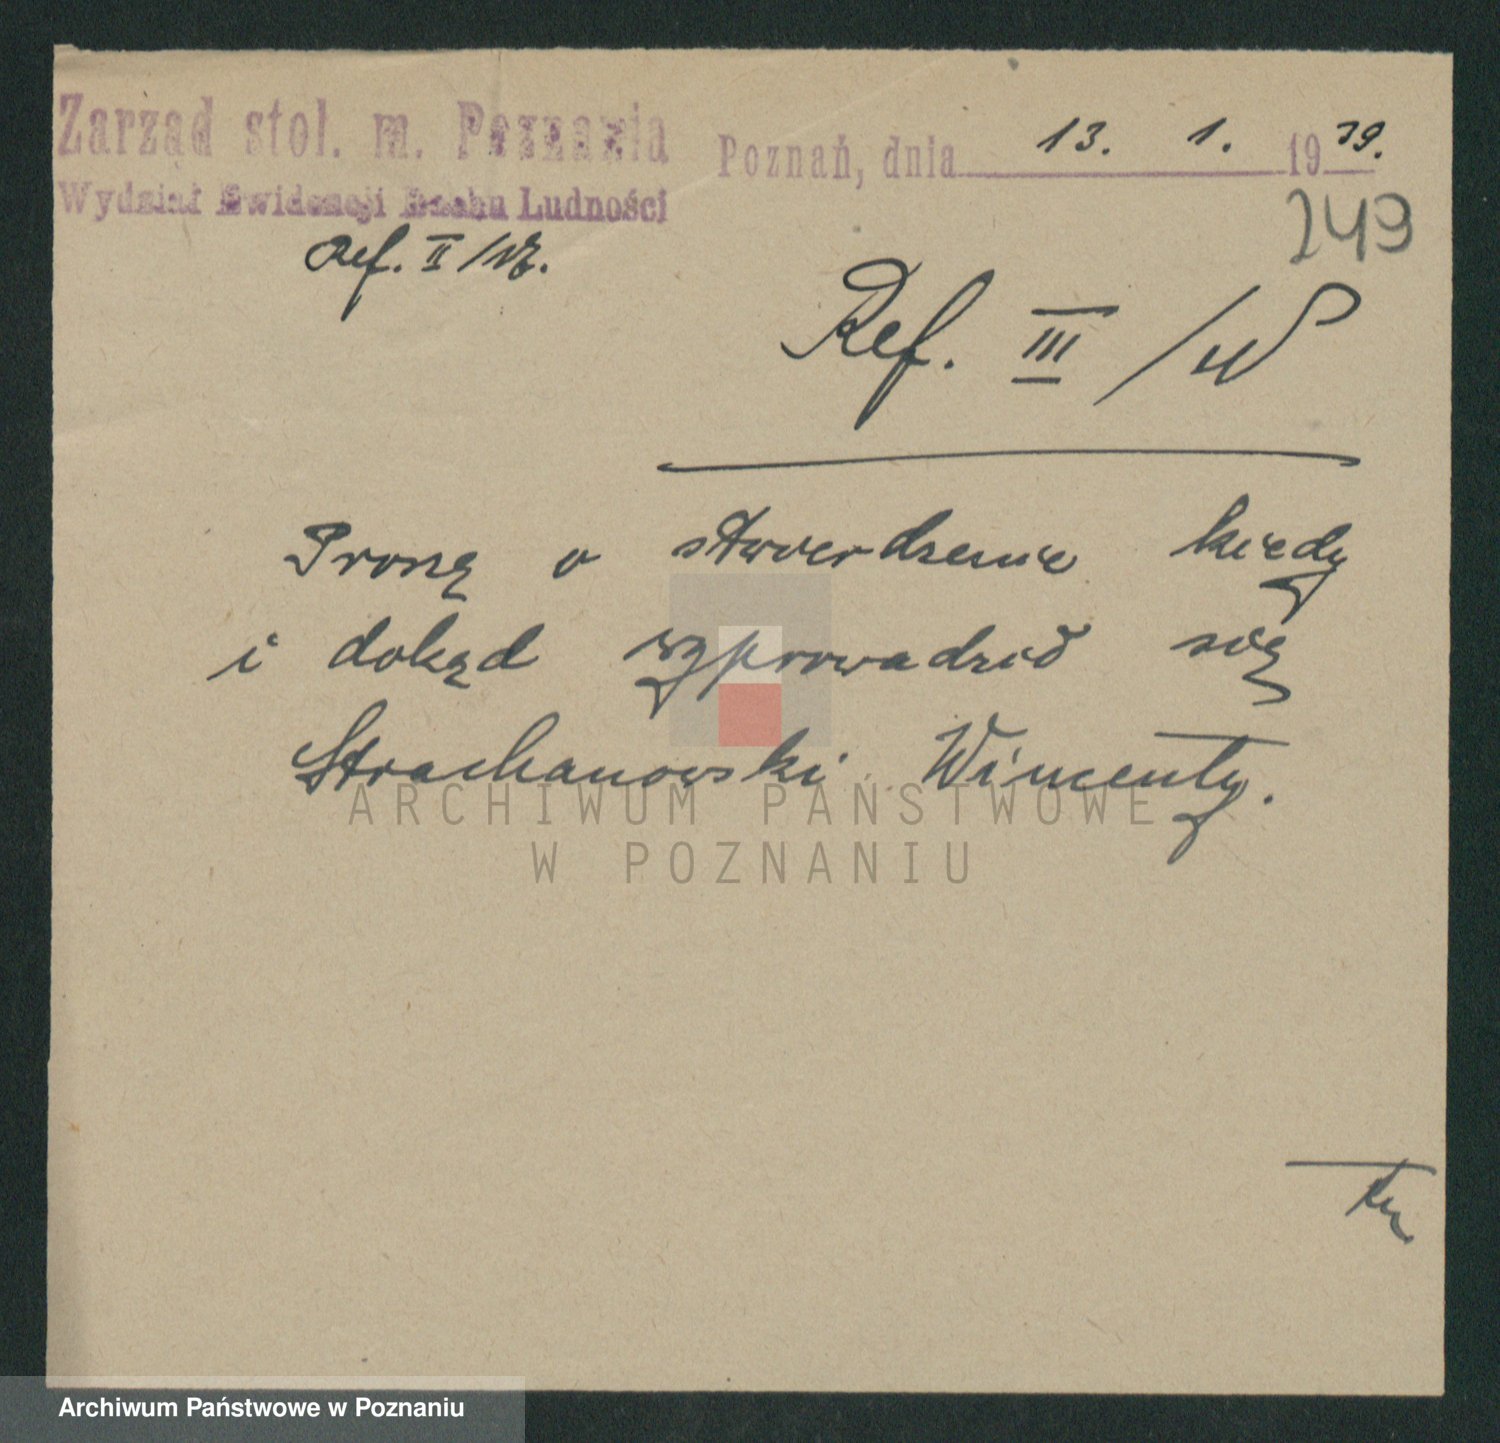 Zarząd stoł. m. Poznania
Wydział Ewidencji Ruchu Ludności
Poznań, dnia 13. 1. 1939.
249
Ref. II /
Ref. III /
Proszę o stwierdzenie kiedy
i dokąd wyprowadził się
Strachanowski Wincenty.
ARCHIWUM PAŃSTWOWE
W POZNANIU
Archiwum Państwowe w Poznaniu